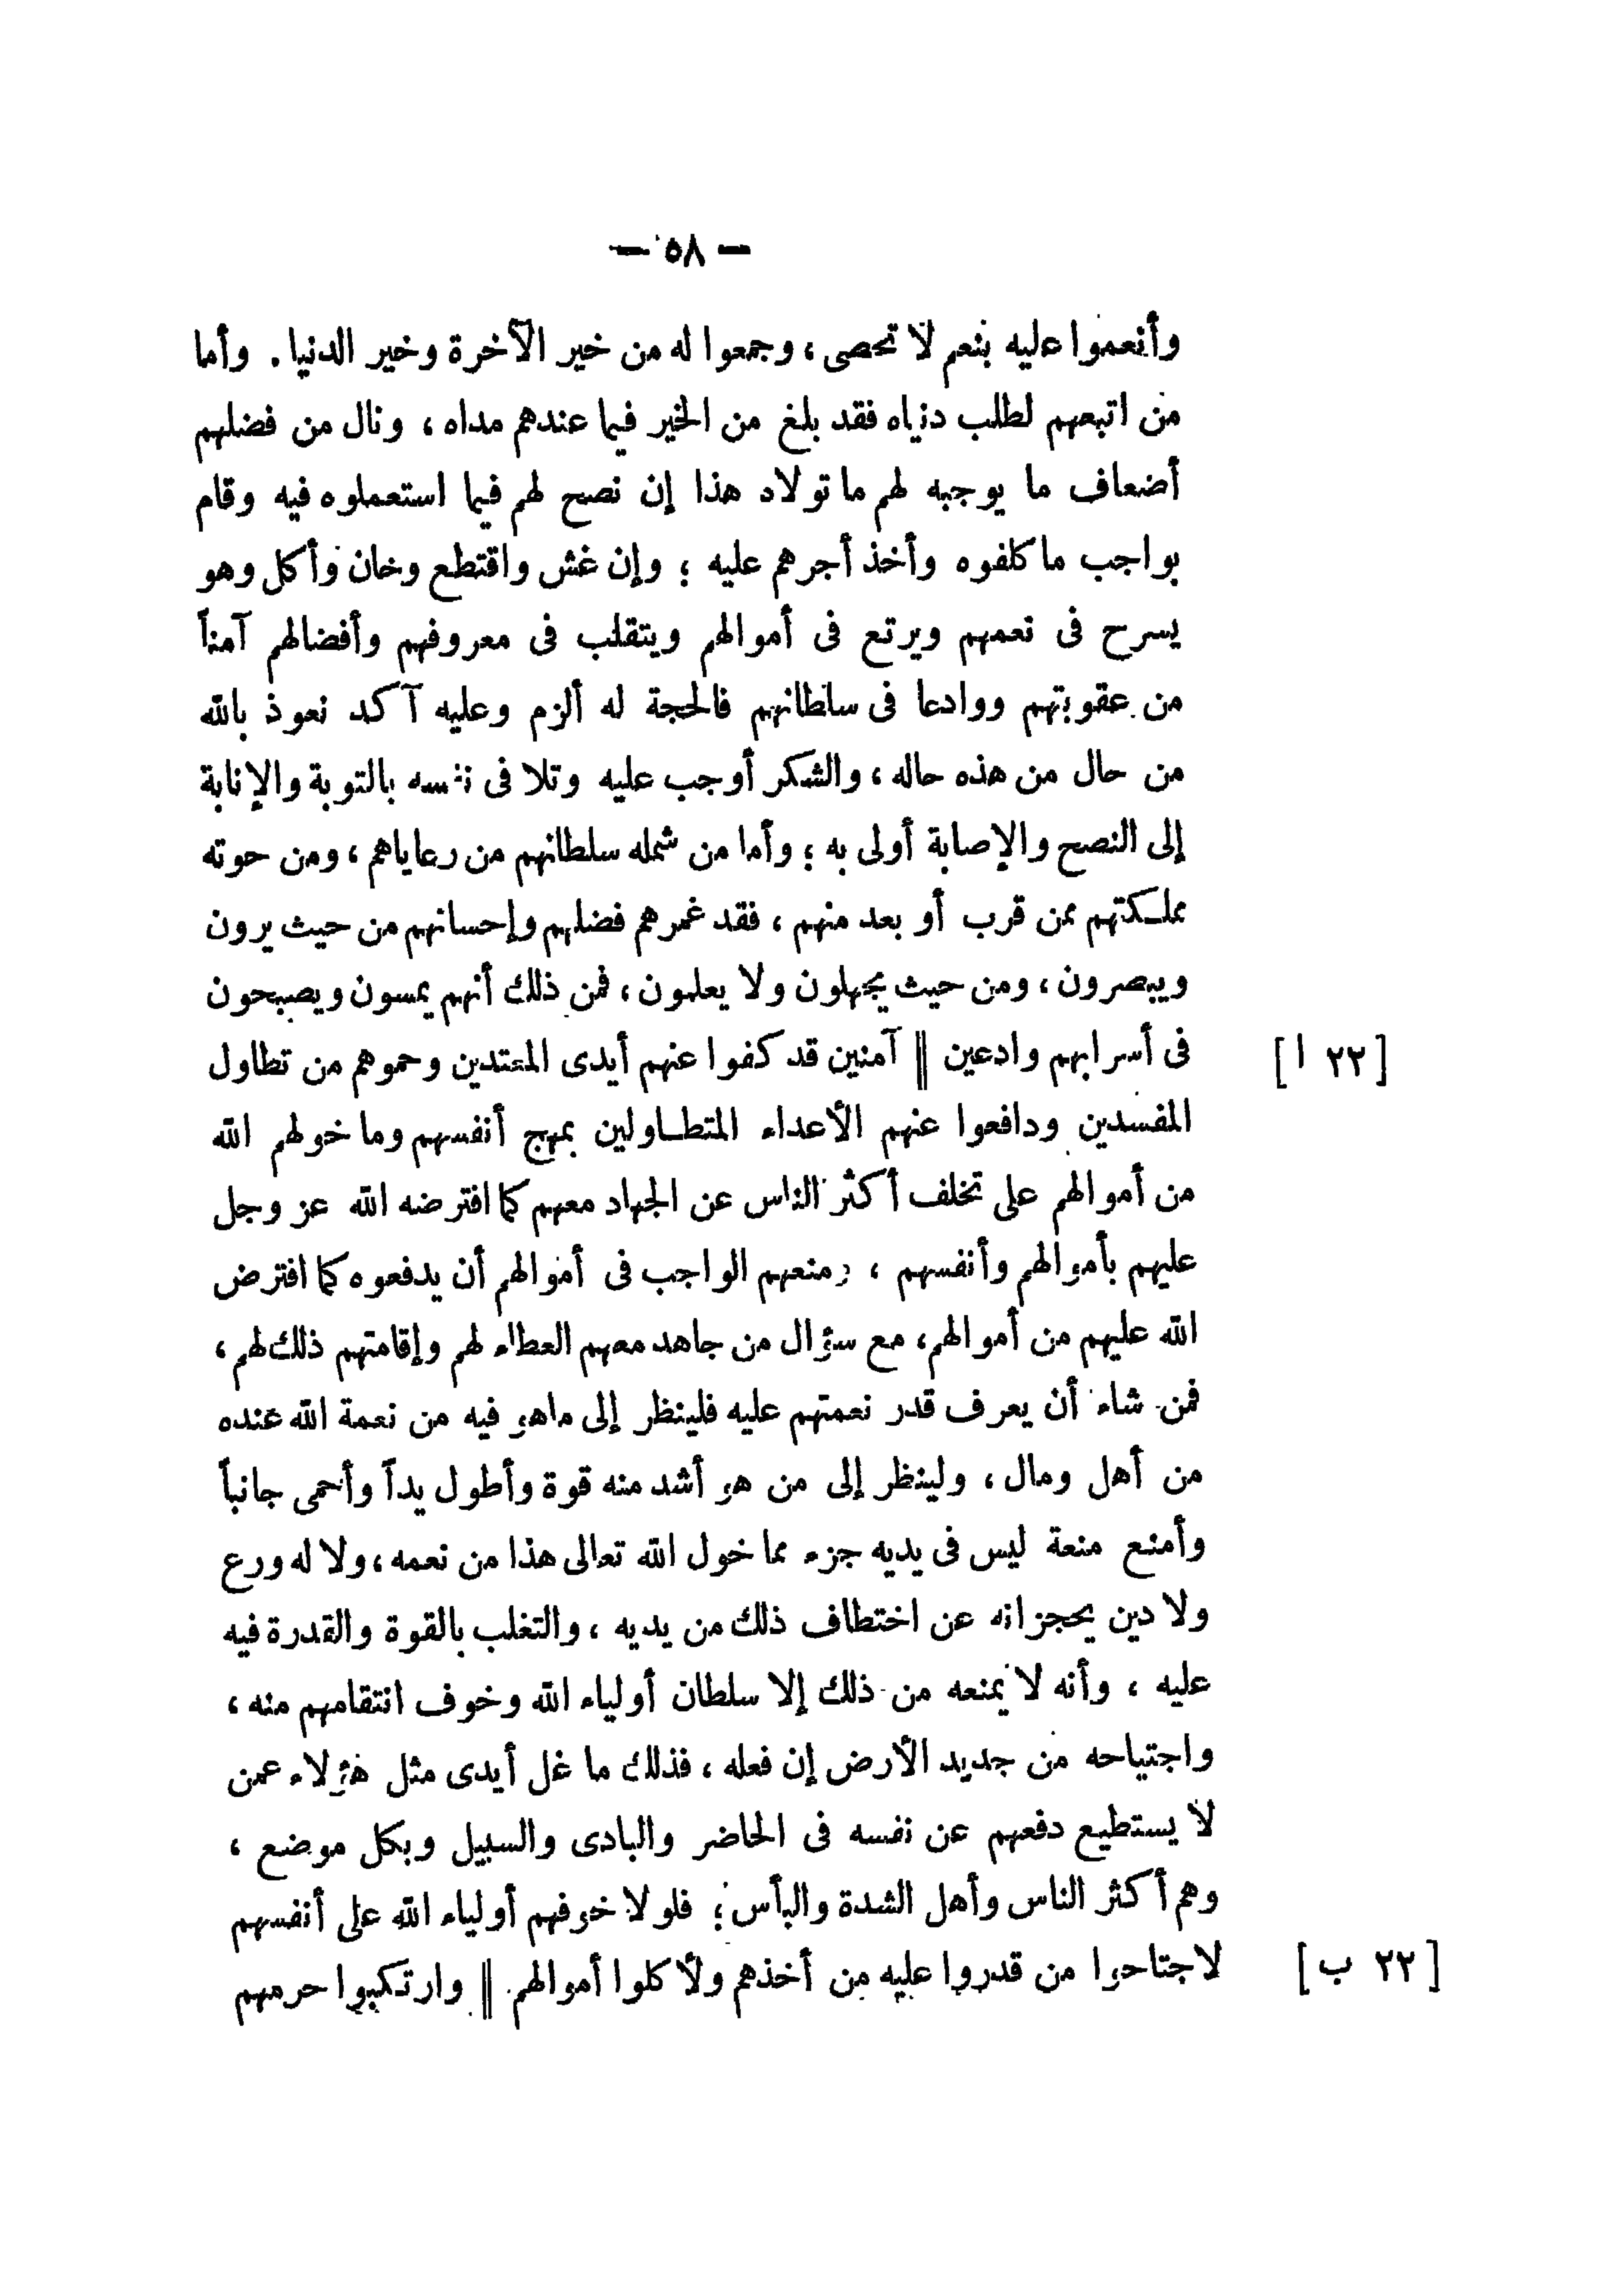 — ٥٨ —
وأنعموا عليه بنعم لا تحصى ، وجمعوا له من خير الآخرة وخير الدنيا . وأما
من اتبعهم لطلب دنياه فقد بلغ من الخير فيما عندهم مداه ، ونال من فضلهم
أضعاف ما يوجبه لهم ما تولاه هذا إن نصح لهم فيما استعملوه فيه وقام
بواجب ما كلفوه وأخذ أجرهم عليه ؛ وإن غش واقتطع وخان وأكل وهو
يسرح فى نعمهم ويرتع فى أموالهم ويتقلب فى معروفهم وأفضالهم آمناً
من عقوبتهم ووادعا فى سلطانهم فالحجة له ألزم وعليه آكد نعوذ بالله
من حال من هذه حاله ، والشكر أوجب عليه وتلافى نفسه بالتوبة والإنابة
إلى النصح والإصابة أولى به ؛ وأما من شمله سلطانهم من رعاياهم ، ومن حوته
مملكتهم ممن قرب أو بعد منهم ، فقد غمرهم فضلهم وإحسانهم من حيث يرون
ويبصرون ، ومن حيث يجهلون ولا يعلمون ، فمن ذلك أنهم يمسون ويصبحون
فى أسرابهم وادعين || آمنين قد كفوا عنهم أيدى المعتدين وحموهم من تطاول [ ٢٢ ا ]
المفسدين ودافعوا عنهم الأعداء المتطاولين بمهج أنفسهم وما خولهم الله
من أموالهم على تخلف أكثر الناس عن الجهاد معهم كما افترضه الله عز وجل
عليهم بأموالهم وأنفسهم ، ومنعهم الواجب فى أموالهم أن يدفعوه كما افترض
الله عليهم من أموالهم ، مع سؤال من جاهد معهم العطاء لهم وإقامتهم ذلك لهم ،
فمن شاء أن يعرف قدر نعمتهم عليه فلينظر إلى ماهو فيه من نعمة الله عنده
من أهل ومال ، ولينظر إلى من هو أشد منه قوة وأطول يداً وأحمى جانباً
وأمنع منعة ليس فى يديه جزء مما خول الله تعالى هذا من نعمه ، ولا له ورع
ولا دين يحجزانه عن اختطاف ذلك من يديه ، والتغلب بالقوة والقدرة فيه
عليه ، وأنه لا يمنعه من ذلك إلا سلطان أولياء الله وخوف انتقامهم منه ،
واجتياحه من جديد الأرض إن فعله ، فذلك ما غل أيدى مثل هؤلاء عمن
لا يستطيع دفعهم عن نفسه فى الحاضر والبادى والسبيل وبكل موضع ،
وهم أكثر الناس وأهل الشدة والبأس ؛ فلولا خوفهم أولياء الله على أنفسهم
لاجتاحوا من قدروا عليه من أخذهم ولأكلوا أموالهم || وارتكبوا حرمهم [ ٢٢ ب ]